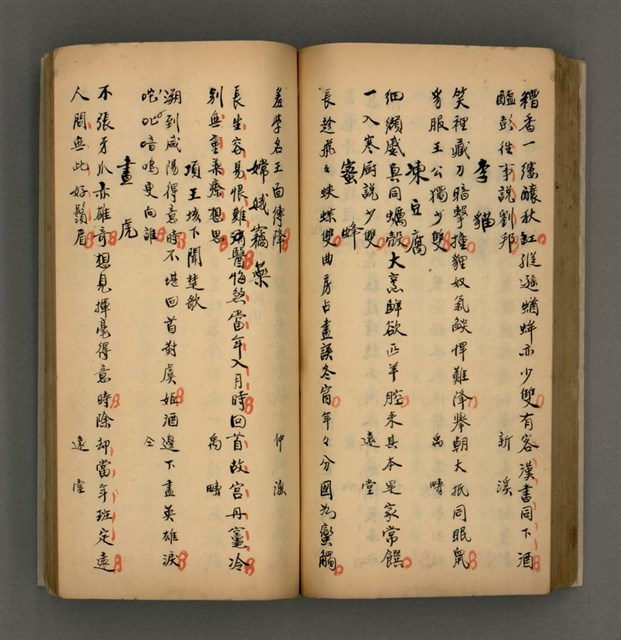 糟香一縷釀秋缸縱遜蝤蛑亦少雙有客漢書同下酒
醢彭往事說劉邦　新溪
李貓
笑裡藏刀暗擊撞貍奴氣燄悍難降舉朝大抵同眠鼠
豸服王公獨少雙　禹疇
凍豆腐
細纈盛真同蠣殼大烹鮮欲匹羊腔來其本是家常饌
一入寒厨說少雙　遠堂
蜜蜂
長趁燕々蛺蝶雙曲房占盡讀冬窗年々分國為蠻觸
羞學名王面縛降　仲漁
嫦娥竊藥
長生容易恨難調醫悔煞當年入月時回首故宮丹竈冷
別無靈藥療想思　禹疇
項王垓下聞楚歌
溯到咸陽得意時不堪回首對虞姬酒邊下盡英雄淚
咤叱喑嗚叟向誰　仝
畫虎
不張牙爪亦雄奇想見揮毫得意時除却當年班定遠
人間無此好鬚眉　遠堂